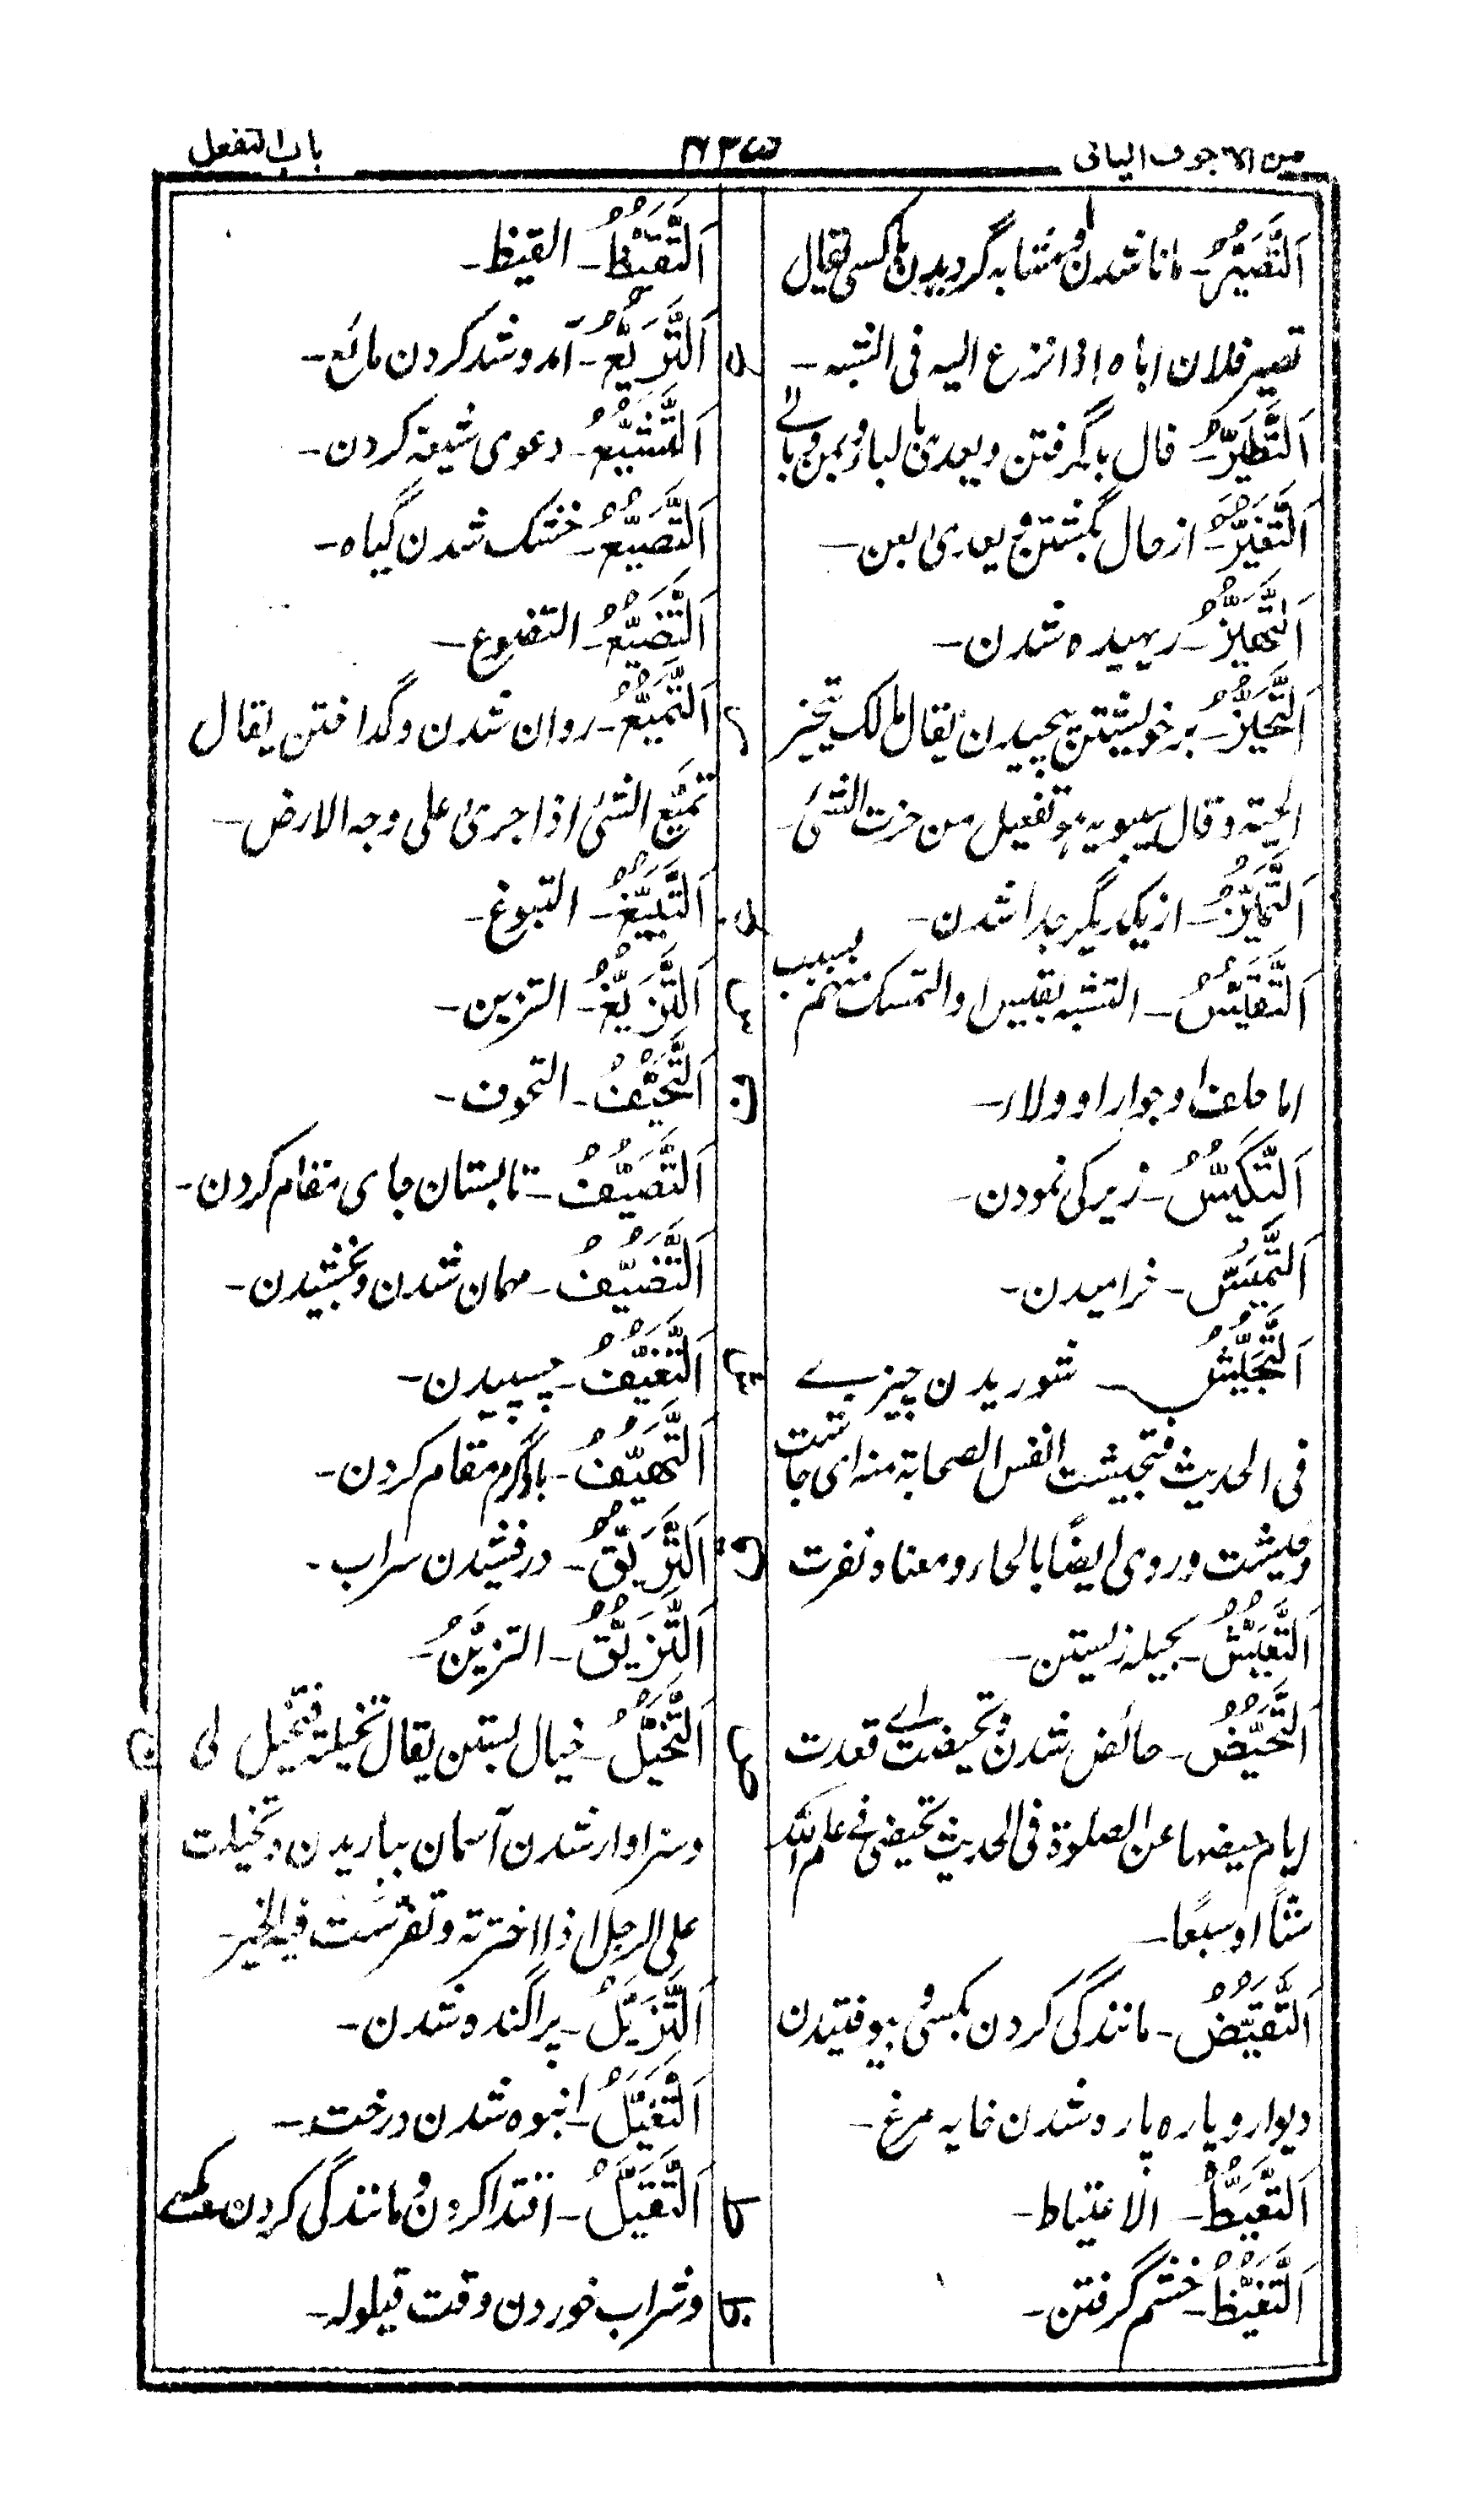 من الاجوف الیائی
۶۳۵
باب التفعل
اَلتَّصَیُّرُ۔ مانا شدن و مشابہ گردیدن با کسی یقال
تصیر فلان اباہ اذا نزع الیہ فی الشبہ۔
اَلتَّطَیُّرُ۔ فال بد گرفتن و یعدی بالباء و بمن
اَلتَّغَیُّرُ۔ از حال بگشتن و یعدی بعن۔
اَلتَّھَیُّزُ۔ رہیدہ شدن۔
اَلتَّحَیُّزُ۔ بر خویشتن پیچیدن یقال مالک تتحیز
الحیۃ و قال سیبویہ ہو تفعیل من حزت الشئ۔
اَلتَّمَیُّزُ۔ از یکدیگر جدا شدن۔
اَلتَّقَیُّسُ۔ التشبہ بقیس او التمسک منہم بسبب
اما حلف او جوار او ولاء۔
اَلتَّکَیُّسُ۔ زیرکی نمودن۔
اَلتَّمَیُّسُ۔ خرامیدن۔
اَلتَّجَیُّشُ۔ شوریدن چیزے
فی الحدیث فتجیشت انفس الصحابۃ منہ ای جاشت
و جیشت و روی ایضًا بالحاء و معناہ نفرت
اَلتَّعَیُّشُ۔ بحیلہ زیستن۔
اَلتَّحَیُّضُ۔ حائض شدن و تحیضت اے قعدت
ایام حیضہا عن الصلوۃ فی الحدیث تحیضی فے علم اللہ
ستًا او سبعًا۔
اَلتَّقَیُّضُ۔ مانندگی کردن بکسی و بیوفتیدن
دیوار و پارہ پارہ شدن خایہ مرغ۔
اَلتَّعَیُّطُ۔ الاعتیاط۔
اَلتَّغَیُّظُ۔ خشم گرفتن۔
اَلتَّقَیُّظُ۔ القیظ۔
اَلتَّرَیُّعُ۔ آمد و شد کردن مائع۔
اَلتَّشَیُّعُ۔ دعوی شیعہ کردن۔
اَلتَّصَیُّعُ۔ خشک شدن گیاہ۔
اَلتَّضَیُّعُ۔ التضوع۔
اَلتَّمَیُّعُ۔ روان شدن و گداختن یقال
تمیّع الشئ اذا جری علی وجہ الارض۔
اَلتَّبَیُّغُ۔ التبوغ۔
اَلتَّزَیُّغُ۔ التزین۔
اَلتَّحَیُّفُ۔ التحوف۔
اَلتَّصَیُّفُ۔ تابستان جای مقام کردن۔
اَلتَّضَیُّفُ۔ مہمان شدن و بخشیدن۔
اَلتَّغَیُّفُ۔ چسپیدن۔
اَلتَّھَیُّفُ۔ مقام کردن۔
اَلتَّرَیُّقُ۔ درفشیدن سراب۔
اَلتَّزَیُّقُ۔ التزیّنُ۔
اَلتَّخَیُّلُ۔ خیال بستن یقال تخیلتہ فتخیل لی
و سزاوار شدن آسمان بباریدن و تخیلت
علی الرجل اذا اخترتہ و تفرست فیہ الخیر۔
اَلتَّزَیُّلُ۔ پراگندہ شدن۔
اَلتَّغَیُّلُ۔ انبوہ شدن درخت۔
اَلتَّقَیُّلُ۔ اقتدا کردن و مانندگی کردن بکسے
و شراب خوردن وقت قیلولہ۔